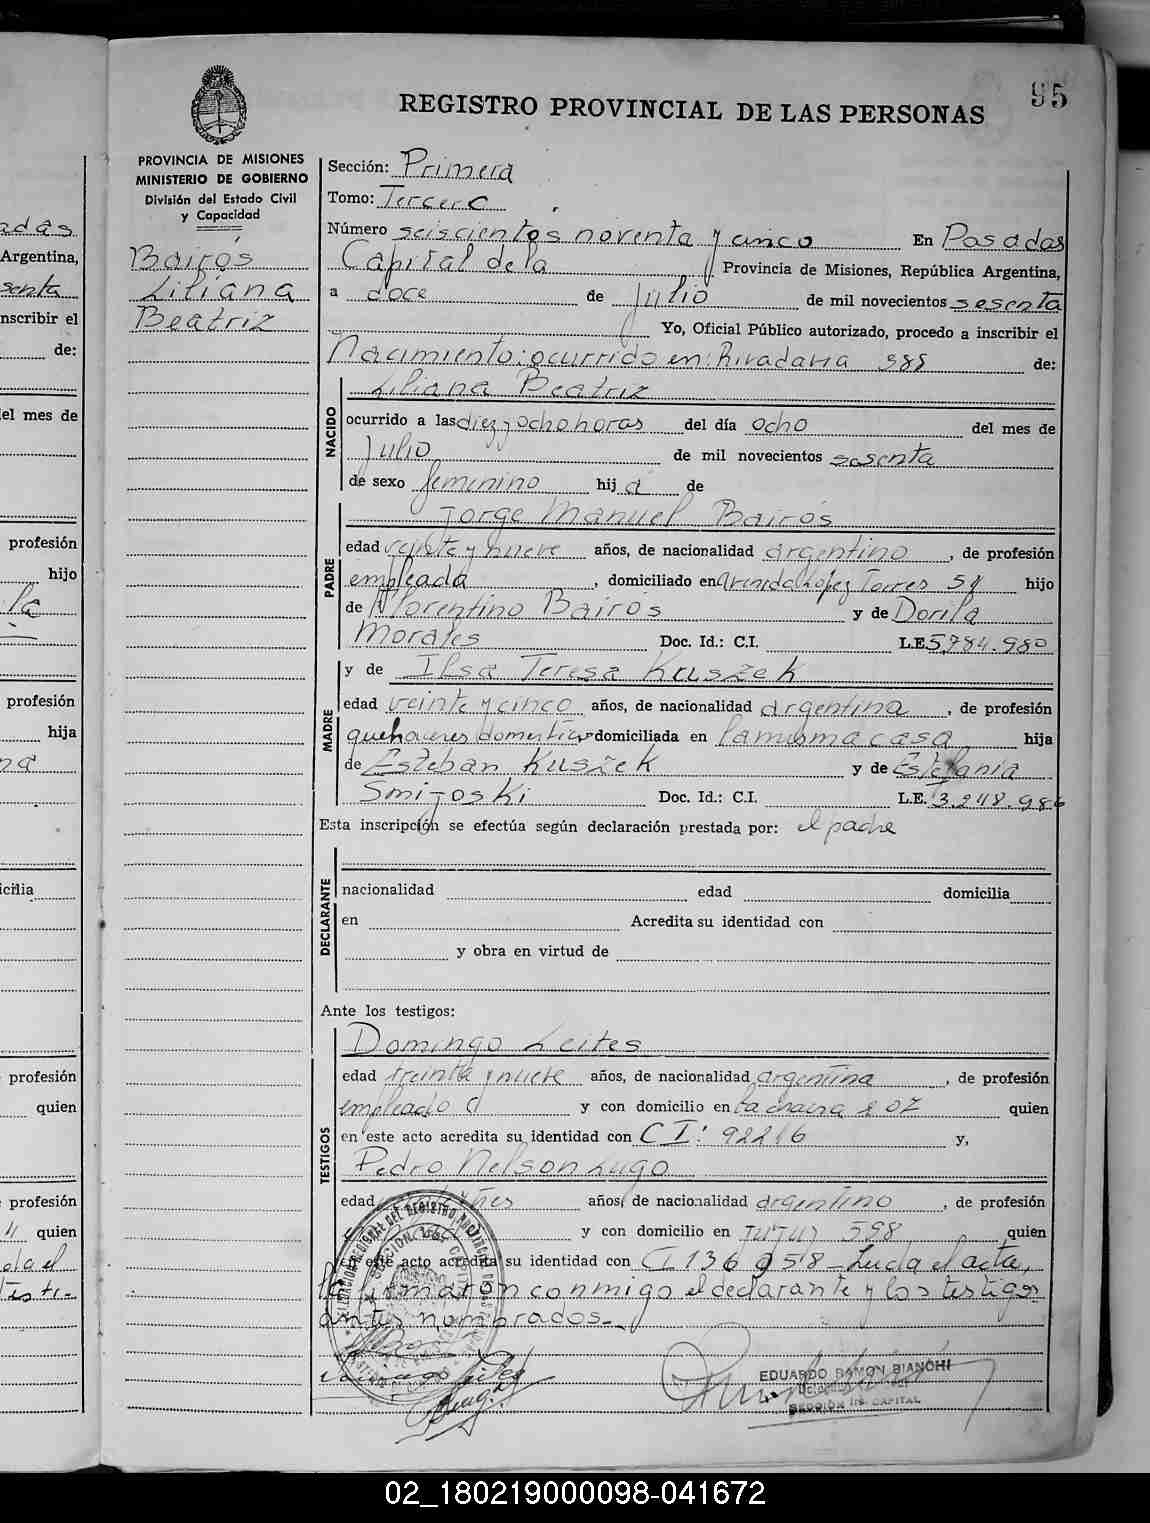 95
REGISTRO PROVINCIAL DE LAS PERSONAS
PROVINCIA DE MISIONES
MINISTERIO DE GOBIERNO
División del Estado Civil
y Capacidad
Bairós
Liliana
Beatriz
Sección: Primera
Tomo: Tercero
Número seiscientos noventa y cinco En Posadas
Capital de la Provincia de Misiones, República Argentina,
a doce de Julio de mil novecientos sesenta
Yo, Oficial Público autorizado, procedo a inscribir el
Nacimiento: ocurrido en: Rivadavia 985 de:
Liliana Beatriz
NACIDO
ocurrido a las diez y ocho horas del día ocho del mes de
Julio de mil novecientos sesenta
de sexo femenino hij a de
Jorge Manuel Bairós
PADRE
edad veinte y nueve años, de nacionalidad argentino, de profesión
empleada, domiciliado en Avenida López Torres 59 hijo
de Florentino Bairos y de Dorila
Morales Doc. Id.: C.I. L.E. 5.784.980
y de Ilsa Teresa Kuszek
MADRE
edad veinte y cinco años, de nacionalidad argentina, de profesión
quehaceres domesticos domiciliada en la misma casa hija
de Esteban Kuszek y de Estefania
Smijoski Doc. Id.: C.I. L.E. 3.248.986
Esta inscripción se efectúa según declaración prestada por: el padre
DECLARANTE
nacionalidad edad domicilia
en Acredita su identidad con
y obra en virtud de
Ante los testigos:
Domingo Leites
TESTIGOS
edad treinta y nueve años, de nacionalidad argentina, de profesión
empleado y con domicilio en La chacra 207 quien
en este acto acredita su identidad con CI: 92216 y,
Pedro Nelson Lugo
edad años, de nacionalidad argentino, de profesión
y con domicilio en Jujuy 598 quien
en este acto acredita su identidad con CI 136958 - Leida el acta,
la firmaron conmigo el declarante y los testigos
antes nombrados.-
EDUARDO RAMON BIANCHI
SECCION 1ra CAPITAL
02_180219000098-041672